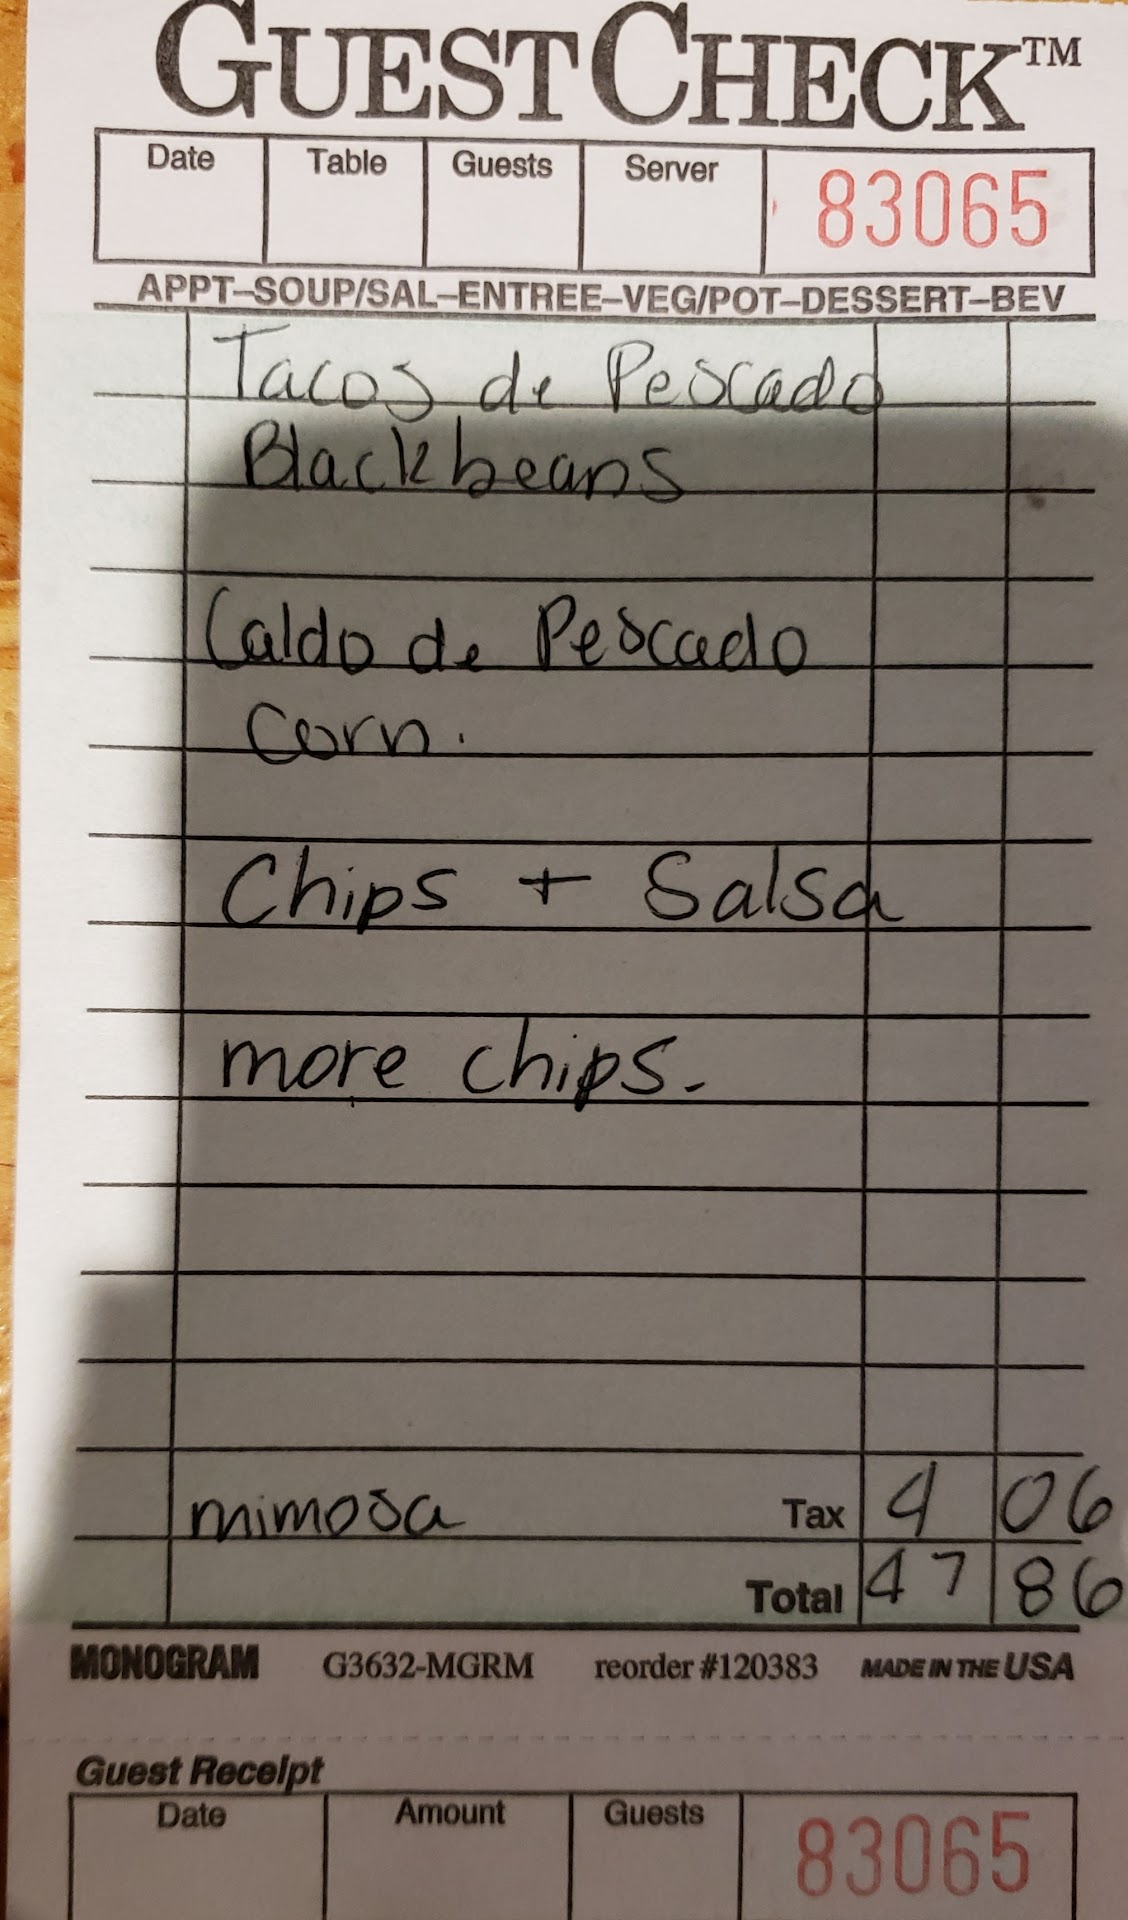 GUESTCHECK™
Date Table Guests Server 83065
APPT–SOUP/SAL–ENTREE–VEG/POT–DESSERT–BEV
Tacos de Pescado
Blackbeans
Caldo de Pescado
Corn.
Chips + Salsa
more chips.
mimosa Tax 4 06
Total 47 86
MONOGRAM G3632-MGRM reorder #120383 MADE IN THE USA
Guest Receipt
Date Amount Guests 83065